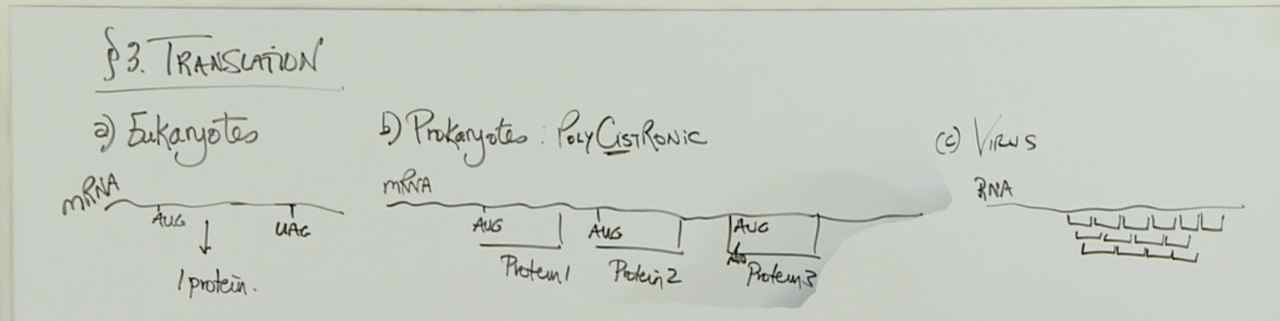 §3. TRANSLATION
a) Eukaryotes
mRNA
AUG
UAG
1 protein.
b) Prokaryotes : POLYCISTRONIC
mRNA
AUG
AUG
AUG
Protein 1
Protein 2
Protein 3
(c) VIRUS
RNA